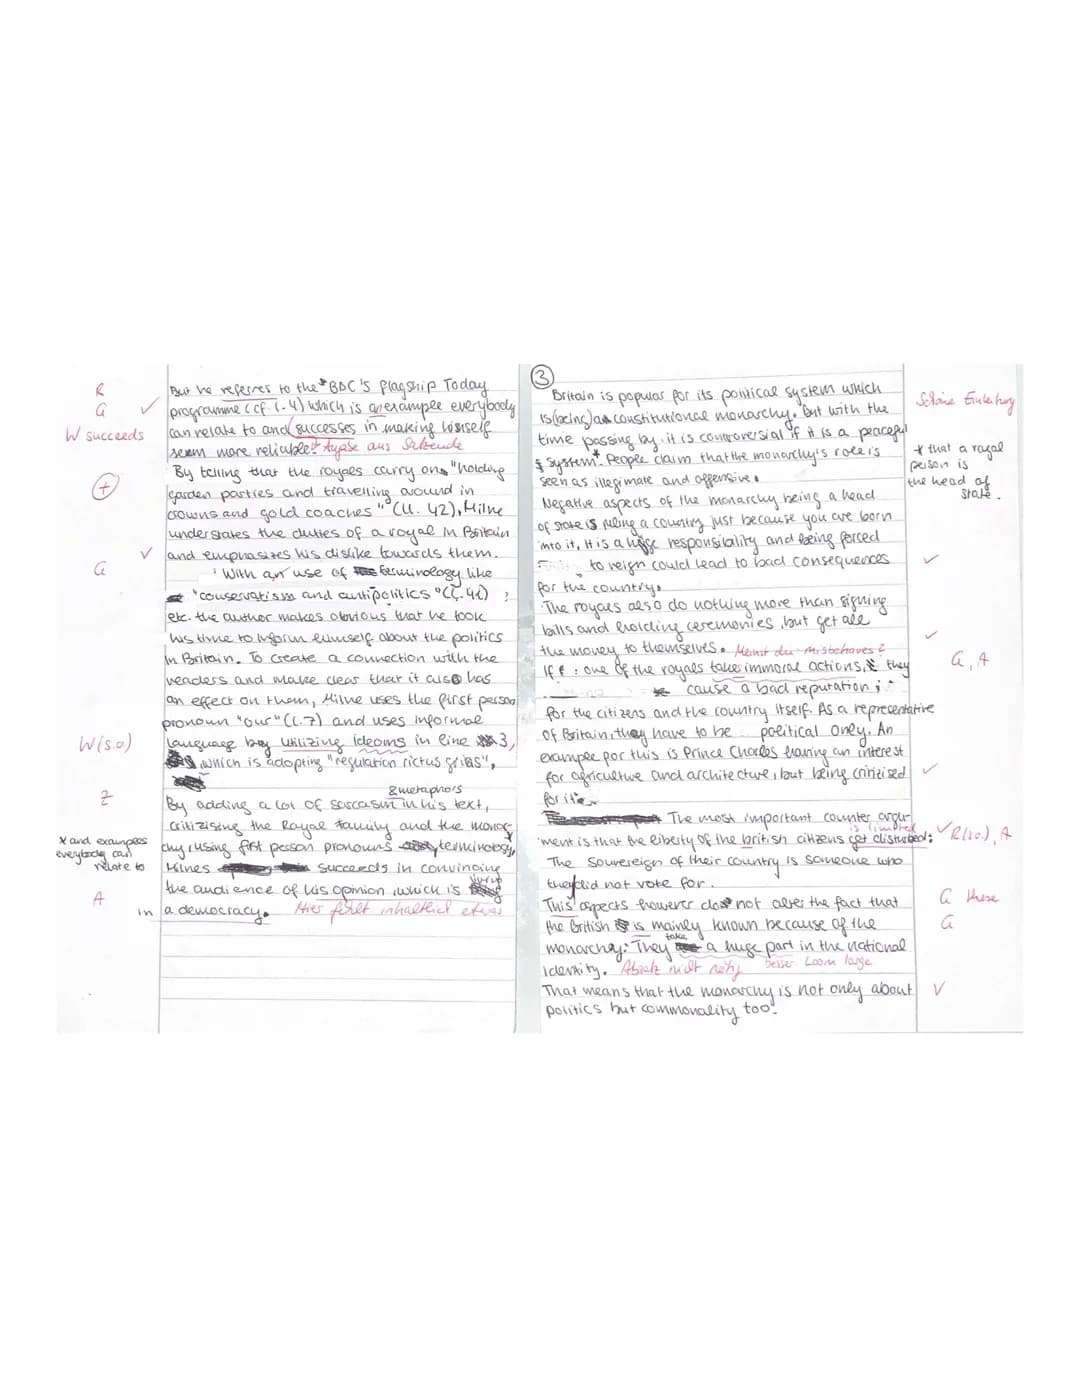 But he referres to the * BBC's flagship Today
programme (cf. l. 4) which is an example everybody
can relate to and successes in making himself
seem more reliable.
By telling that the royals carry on "holding
garden parties and travelling around in
crowns and gold coaches" (ll. 42), Milne
understates the duties of a royal in Britain
and emphasizes his dislike towards them.
With an use of terminology like
"conservatism and antipolitics" (l. 41)
etc. the author makes obvious that he took
his time to inform himself about the politics
in Britain. To create a connection with the
readers and make clear that it also has
an effect on them, Milne uses the first person
pronoun "our" (l. 7) and uses informal
language by utilizing Ideoms in line 3,
which is adopting "regulation rictus grins".
& metaphors
By adding a lot of sarcasm in his text,
critizising the Royal Family and the monar-
chy, using first person pronouns terminology,
Milnes succeeds in convincing
the audience of his opinion, which is living
in a democracy. Hier fehlt inhaltlich etwas
R
G ✓
W succeeds
+
✓
G
W (s.o.)
Z
* and examples
everybody can
relate to
A
③
Britain is popular for its political system which
is (being) a constitutional monarchy. But with the
time passing by, it is controversial if it is a peaceful
system*. People claim that the monarchy's role is
seen as illegimate and offensive.
Negative aspects of the monarchy being a head
of state is ruling a country just because you are born
into it, it is a huge responsibility and being forced
to reign could lead to bad consequences
for the country.
The royals also do nothing more than signing
bills and holding ceremonies, but get all
the money to themselves. Meinst du misbehaves?
If : one of the royals takes immoral actions, they
cause a bad reputation
for the citizens and the country itself. As a representative
of Britain, they have to be political only. An
example for this is Prince Charles having an interest
for agriculture and architecture, but being critizised
for it.
The most important counter argu-
is limited
ment is that the liberty of the british citizens get disturbed:
The Souvereign of their country is someone who
they did not vote for.
This aspects however does not alter the fact that
the British is mainly known because of the
monarchy. They take a huge part in the national
identity. Absatz nicht nötig besser loom large
That means that the monarchy is not only about
politics but commonality too.
Schöne Einleitung
* that a royal
person is
the head of
state.
✓
✓
G, A
✓
✓ R (s.o.), A
G these
G
✓